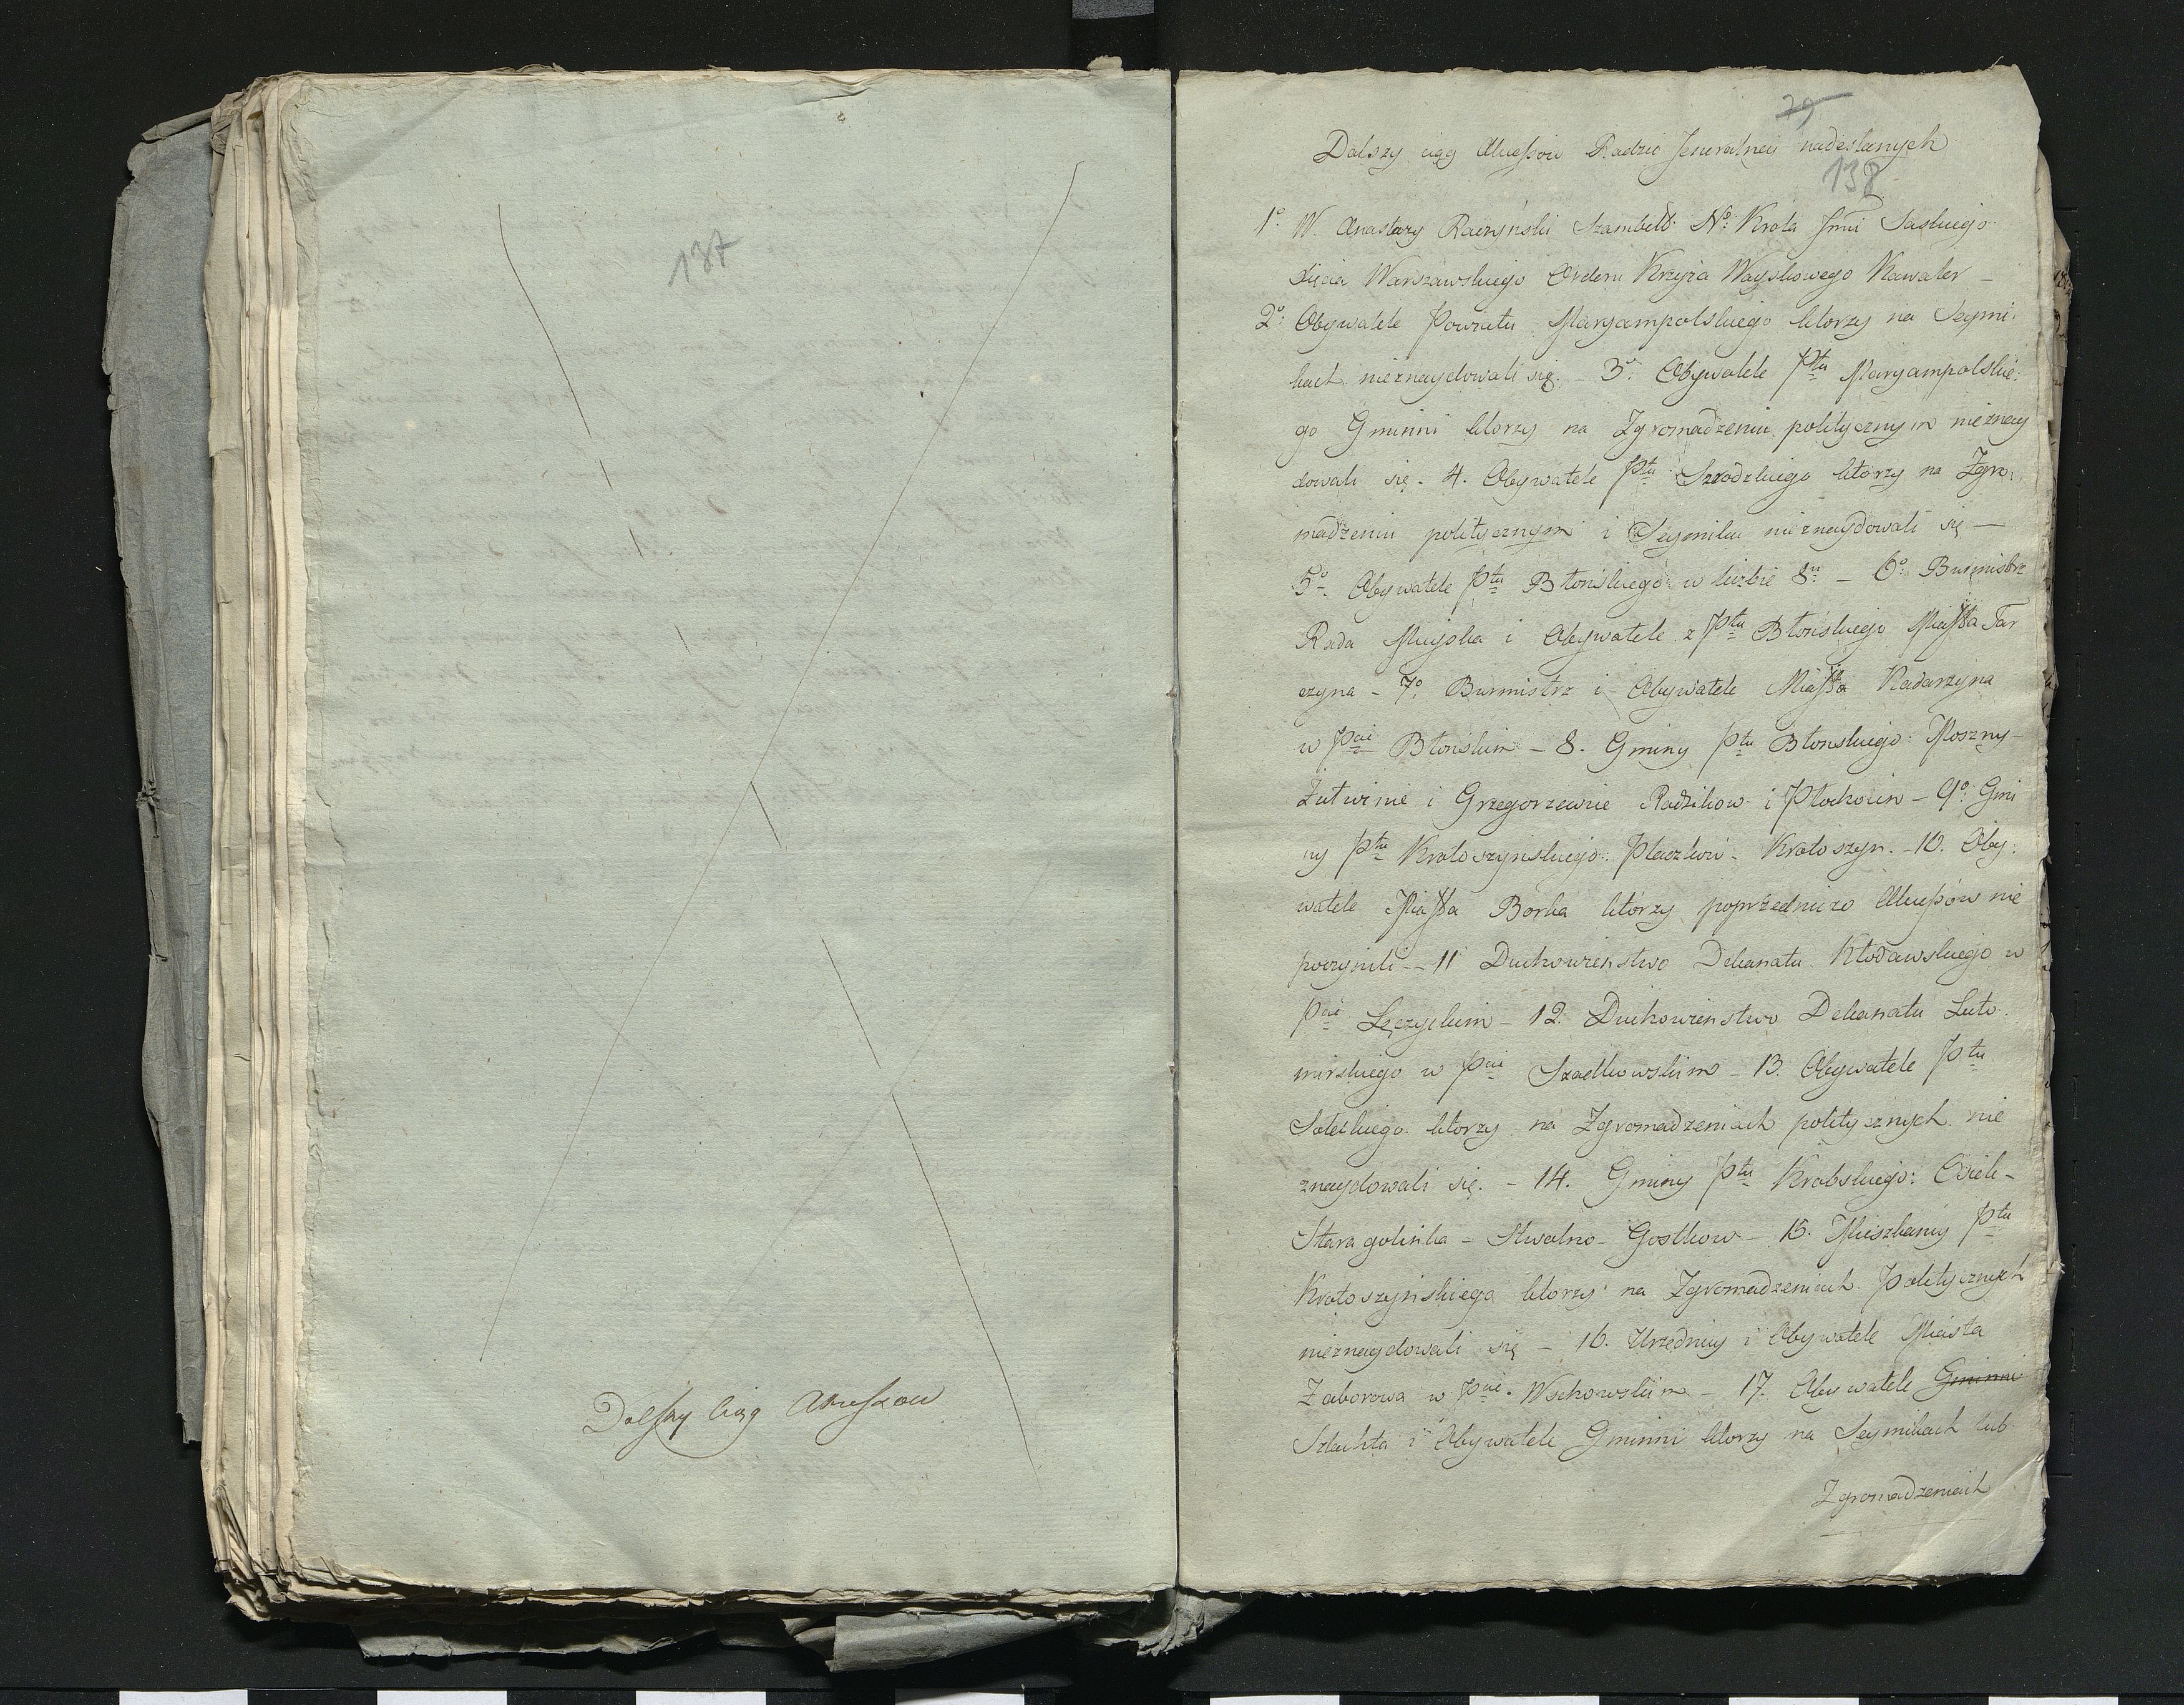 137
Dalszy Ciąg Akcessow
79
Dalszy ciąg Akcessow Radzie Jeneralney nadesłanych
138
1o W. Anastazy Raczyński Szambell: No: Krola Jmci Saskiego
Xięcia Warszawskiego Orderu Krzyża Woyskowego Kawaler –
2o: Obywatele Powiatu Maryampolskiego ktorzy na Seymi:
kach nieznaydowali się. – 3o: Obywatele Ptu Maryampolskie:
go Gminni ktorzy na Zgromadzeniu politycznym nieznay
dowali się. 4. Obywatele Ptu Szrodzkiego ktorzy na Zgro:
madzeniu politycznym i Seymiku nieznaydowali się –
5o. Obywatele Ptu Błońskiego w liczbie 8u – 6o: Burmistrz
Rada Mieyska i Obywatele z Ptu Błońskiego Miasta Tar
czyna – 7o: Burmistrz i Obywatele Miasta Nadarzyna
w Pcie Błońskim – 8. Gminy Ptu Błonskiego: Moszny –
Żutwinie i Grzegorzewie Radzikow i Płochocin – 9o: Gmi
ny Ptu Krotoszyńskiego: – Krotoszyn. – 10. Oby:
watele Miasta Borka ktorzy poprzedniczo Akcessow nie
poczynili – 11 Duchowienstwo Dekanatu Kłodawskiego w
Pcie Łęczyckim – 12. Duchowienstwo Dekanatu Luto:
mirskiego w Pcie Szadkowskim – 13. Obywatele Ptu
Soleckiego ktorzy na Zgromadzeniach politycznych nie
znaydowali się. – 14. Gminy Ptu Krobskiego: –
Stara golinka – – Gostkow – 15. Mieszkancy Ptu
Krotoszyńskiego ktorzy na Zgromadzeniach Politycznych
nieznaydowali się – 16. Urzędnicy i Obywatele Miasta
Zaborowa w Pcie Wschowskim – 17. Obywatele Gminni
Szlachta i Obywatele Gminni ktorzy na Seymikach lub
Zgromadzeniach